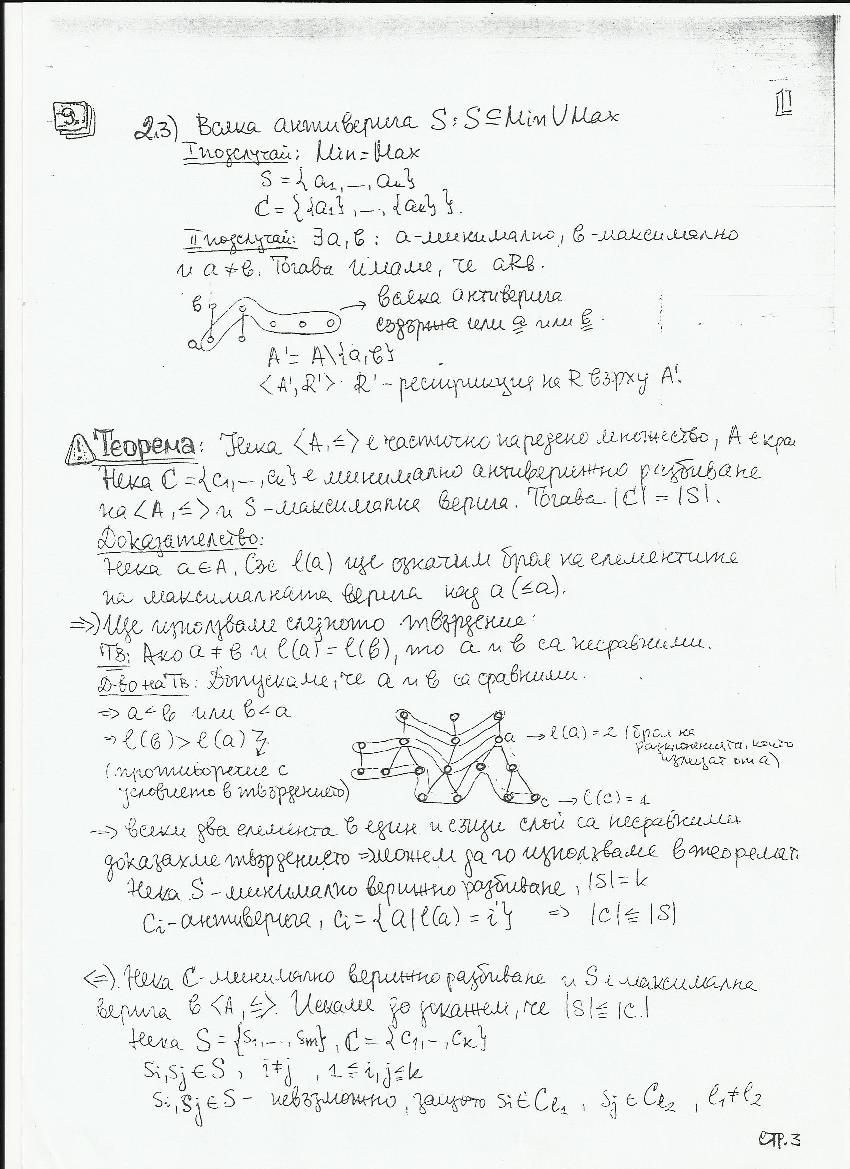 9.
11
2.3) Всяка антиверига S: S⊆Min∪Max
I подслучай: Min=Max
S = {a1,...,ak}
C = {{a1},...,{ak}}.
II подслучай: ∃a,b: a-минимално, b-максимално
и a≠b. Тогава имаме, че aRb.
b → всяка антиверига
a съдържа или a или b.
A' = A\{a,b}
<A',R'>. R' - рестрикция на R върху A'.
Теорема: Нека <A,≤> е частично наредено множество, A е кра
Нека C = {c1,...,ck} е минимално антиверижно разбиване
на <A,≤> и S - максимална верига. Тогава |C| = |S|.
Доказателство:
Нека a∈A. Със l(a) ще означим броя на елементите
на максималната верига над a (≤a).
=>) Ще използваме следното твърдение:
ТВ: Ако a≠b и l(a) = l(b), то a и b са несравними.
Д-во на ТВ: Допускаме, че a и b са сравними.
=> a<b или b<a
=> l(b) > l(a)
a → l(a) = 2 (броя на
разклоненията, които
излизат от a)
(противоречие с
условието в твърдението)
c → l(c) = 1
--> всеки два елемента в един и същи слой са несравними
доказахме твърдението => можем да го използваме в теоремат
Нека S - минимално верижно разбиване, |S| = k
Ci - антиверига, Ci = {a|l(a) = i} => |C| ≤ |S|
<=). Нека C - минимално верижно разбиване и S е максимална
верига в <A,≤>. Искаме да докажем, че |S| ≤ |C|
Нека S = {s1,...,sm}, C = {c1,...,ck}
si,sj∈S, i≠j, 1≤i,j≤k
si,sj∈S - невъзможно, защото si∈Cl1, sj∈Cl2, l1≠l2
стр.3